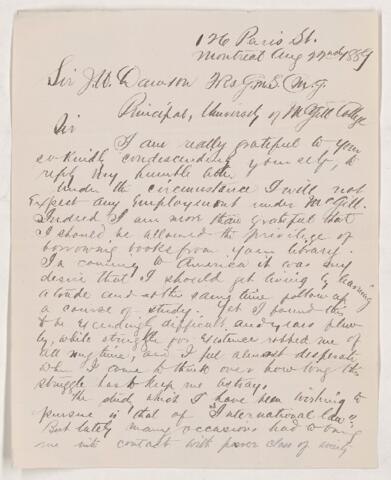 126 Paris St.
Montreal Aug 22nd 1889
Sir J.W. Dawson F.R.S. C.M.G.
Principal, University of McGill College
Sir
I am really grateful to your
so kindly condescending yourself, to
reply my humble letter.
Under the circumstance I will not
expect any employment under McGill.
Indeed I am more than grateful that
I should be allowed the privilege of
borrowing books from your library.
In coming to America it was my
desire that I should get living by learning
a trade and at the same time follow up
a course of study. Yet I found this
to be exceedingly difficult, and years
by, while struggle for existence robbed me of
all my time, and I feel almost desperate
when I come to think over how long this
struggle has to keep me
The study which I have been wishing to
pursue is that of "International law".
But lately many occasions had to bring
me into contact with poorer class of society